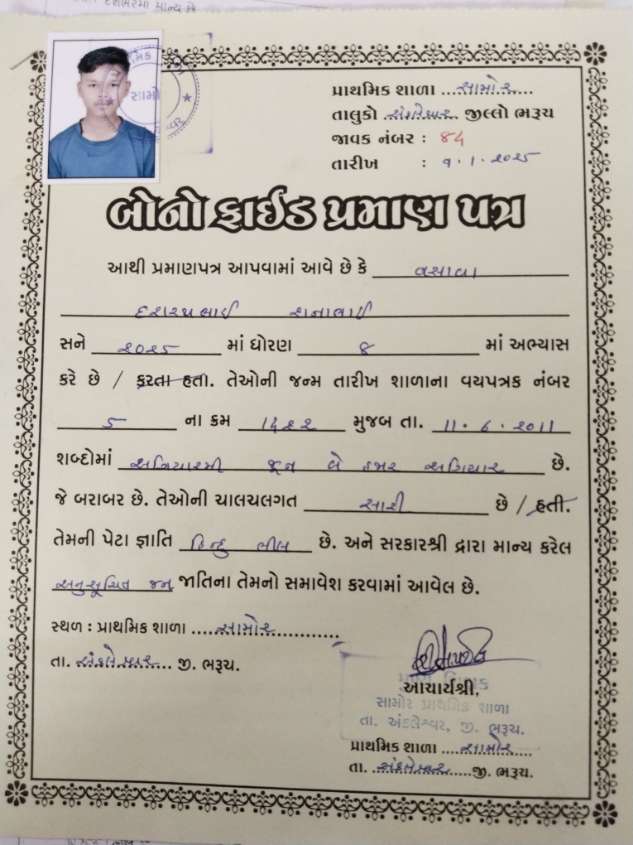 પ્રાથમિક શાળા ...સામોર....
તાલુકો અંકલેશ્વર. જીલ્લો ભરૂચ
જાવક નંબર : ૮૪
તારીખ : ૧.૧.૨૦૨૫
બોનોફાઈડ પ્રમાણ પત્ર
આથી પ્રમાણપત્ર આપવામાં આવે છે કે વસાવા
દશરથભાઈ
સને ૨૦૨૫ માં ધોરણ ૮ માં અભ્યાસ
કરે છે / કરતા હતા. તેઓની જન્મ તારીખ શાળાના વયપત્રક નંબર
૫ ના ક્રમ ૧૫૨૨ મુજબ તા. ૧૧.૬.૨૦૧૧
શબ્દોમાં અગિયારમી જૂન બે હજાર અગિયાર છે.
જે બરાબર છે. તેઓની ચાલચલગત સારી છે / હતી.
તેમની પેટા જ્ઞાતિ હિન્દુ ભીલ છે. અને સરકારશ્રી દ્વારા માન્ય કરેલ
અનુસૂચિત જન જાતિના તેમનો સમાવેશ કરવામાં આવેલ છે.
સ્થળ : પ્રાથમિક શાળા .....સામોર...............
તા. અંકલેશ્વર... જી. ભરૂચ.
આચાર્યશ્રી,
સામોર પ્રાથમિક શાળા
તા. અંકલેશ્વર, જી. ભરૂચ.
પ્રાથમિક શાળા ....સામોર....
તા. ..અંકલેશ્વર.....જી. ભરૂચ.